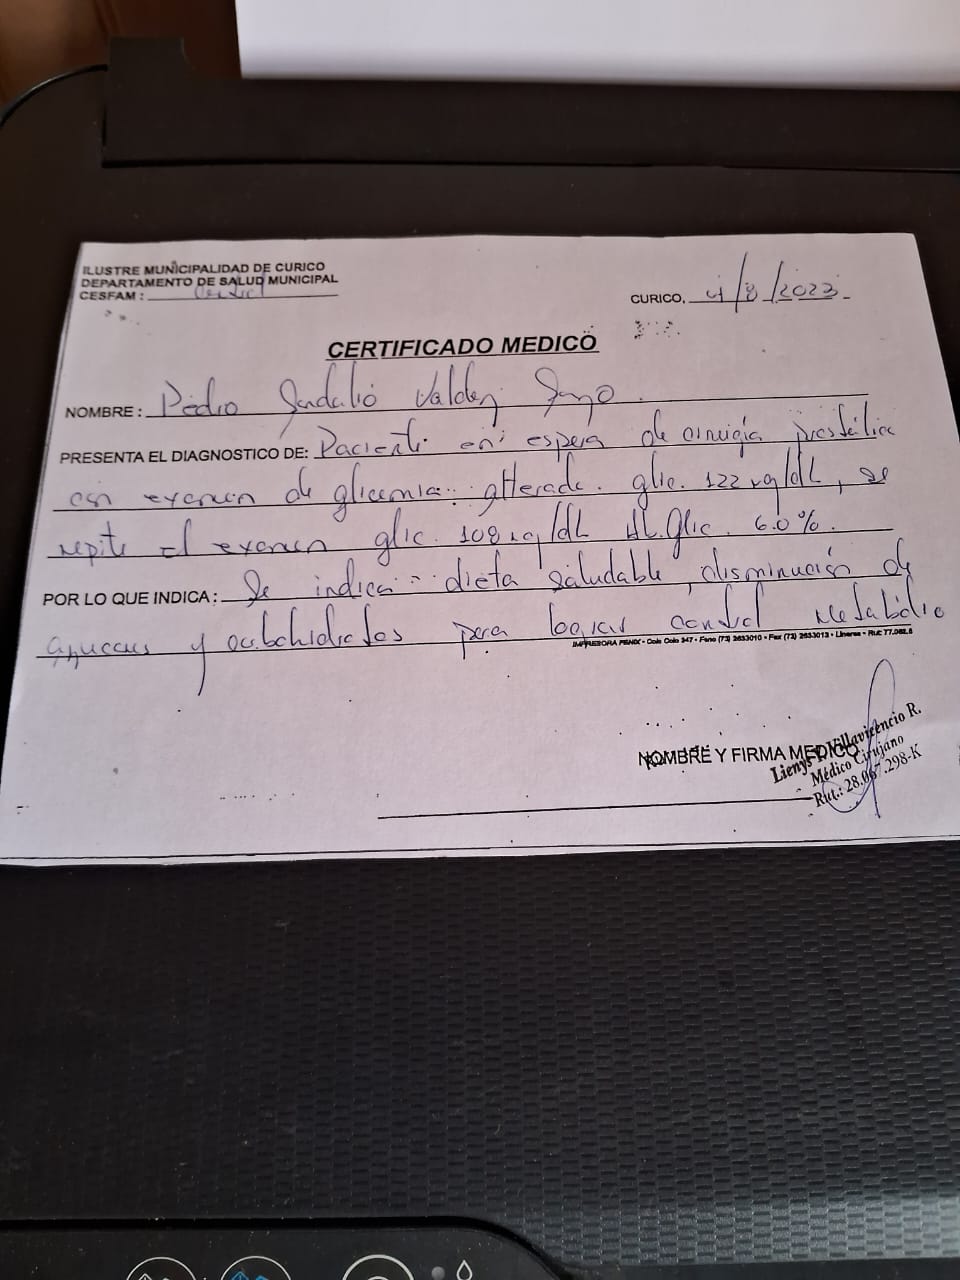 ILUSTRE MUNICIPALIDAD DE CURICO
DEPARTAMENTO DE SALUD MUNICIPAL
CESFAM : Central
CURICO, 4/8/2023
CERTIFICADO MEDICO
NOMBRE : Pedro Valdez
PRESENTA EL DIAGNOSTICO DE: Paciente en espera de cirugía prostática
con examen de glicemia alterada. glic. 122 mg/dL, se
repite el examen glic. 108 mg/dL Hb.Glic. 6.0%.
POR LO QUE INDICA : Se indica dieta saludable, disminución de
azucares y carbohidratos para lograr control Metabólico
IMPRESORA FENIX - Colo Colo 347 - Fono (73) 2633010 - Fax (73) 2633013 - Linares - Rut: 77.062.6
NOMBRE Y FIRMA MEDICO
Lienys Villavicencio R.
Médico Cirujano
Rut.: 28.067.298-K